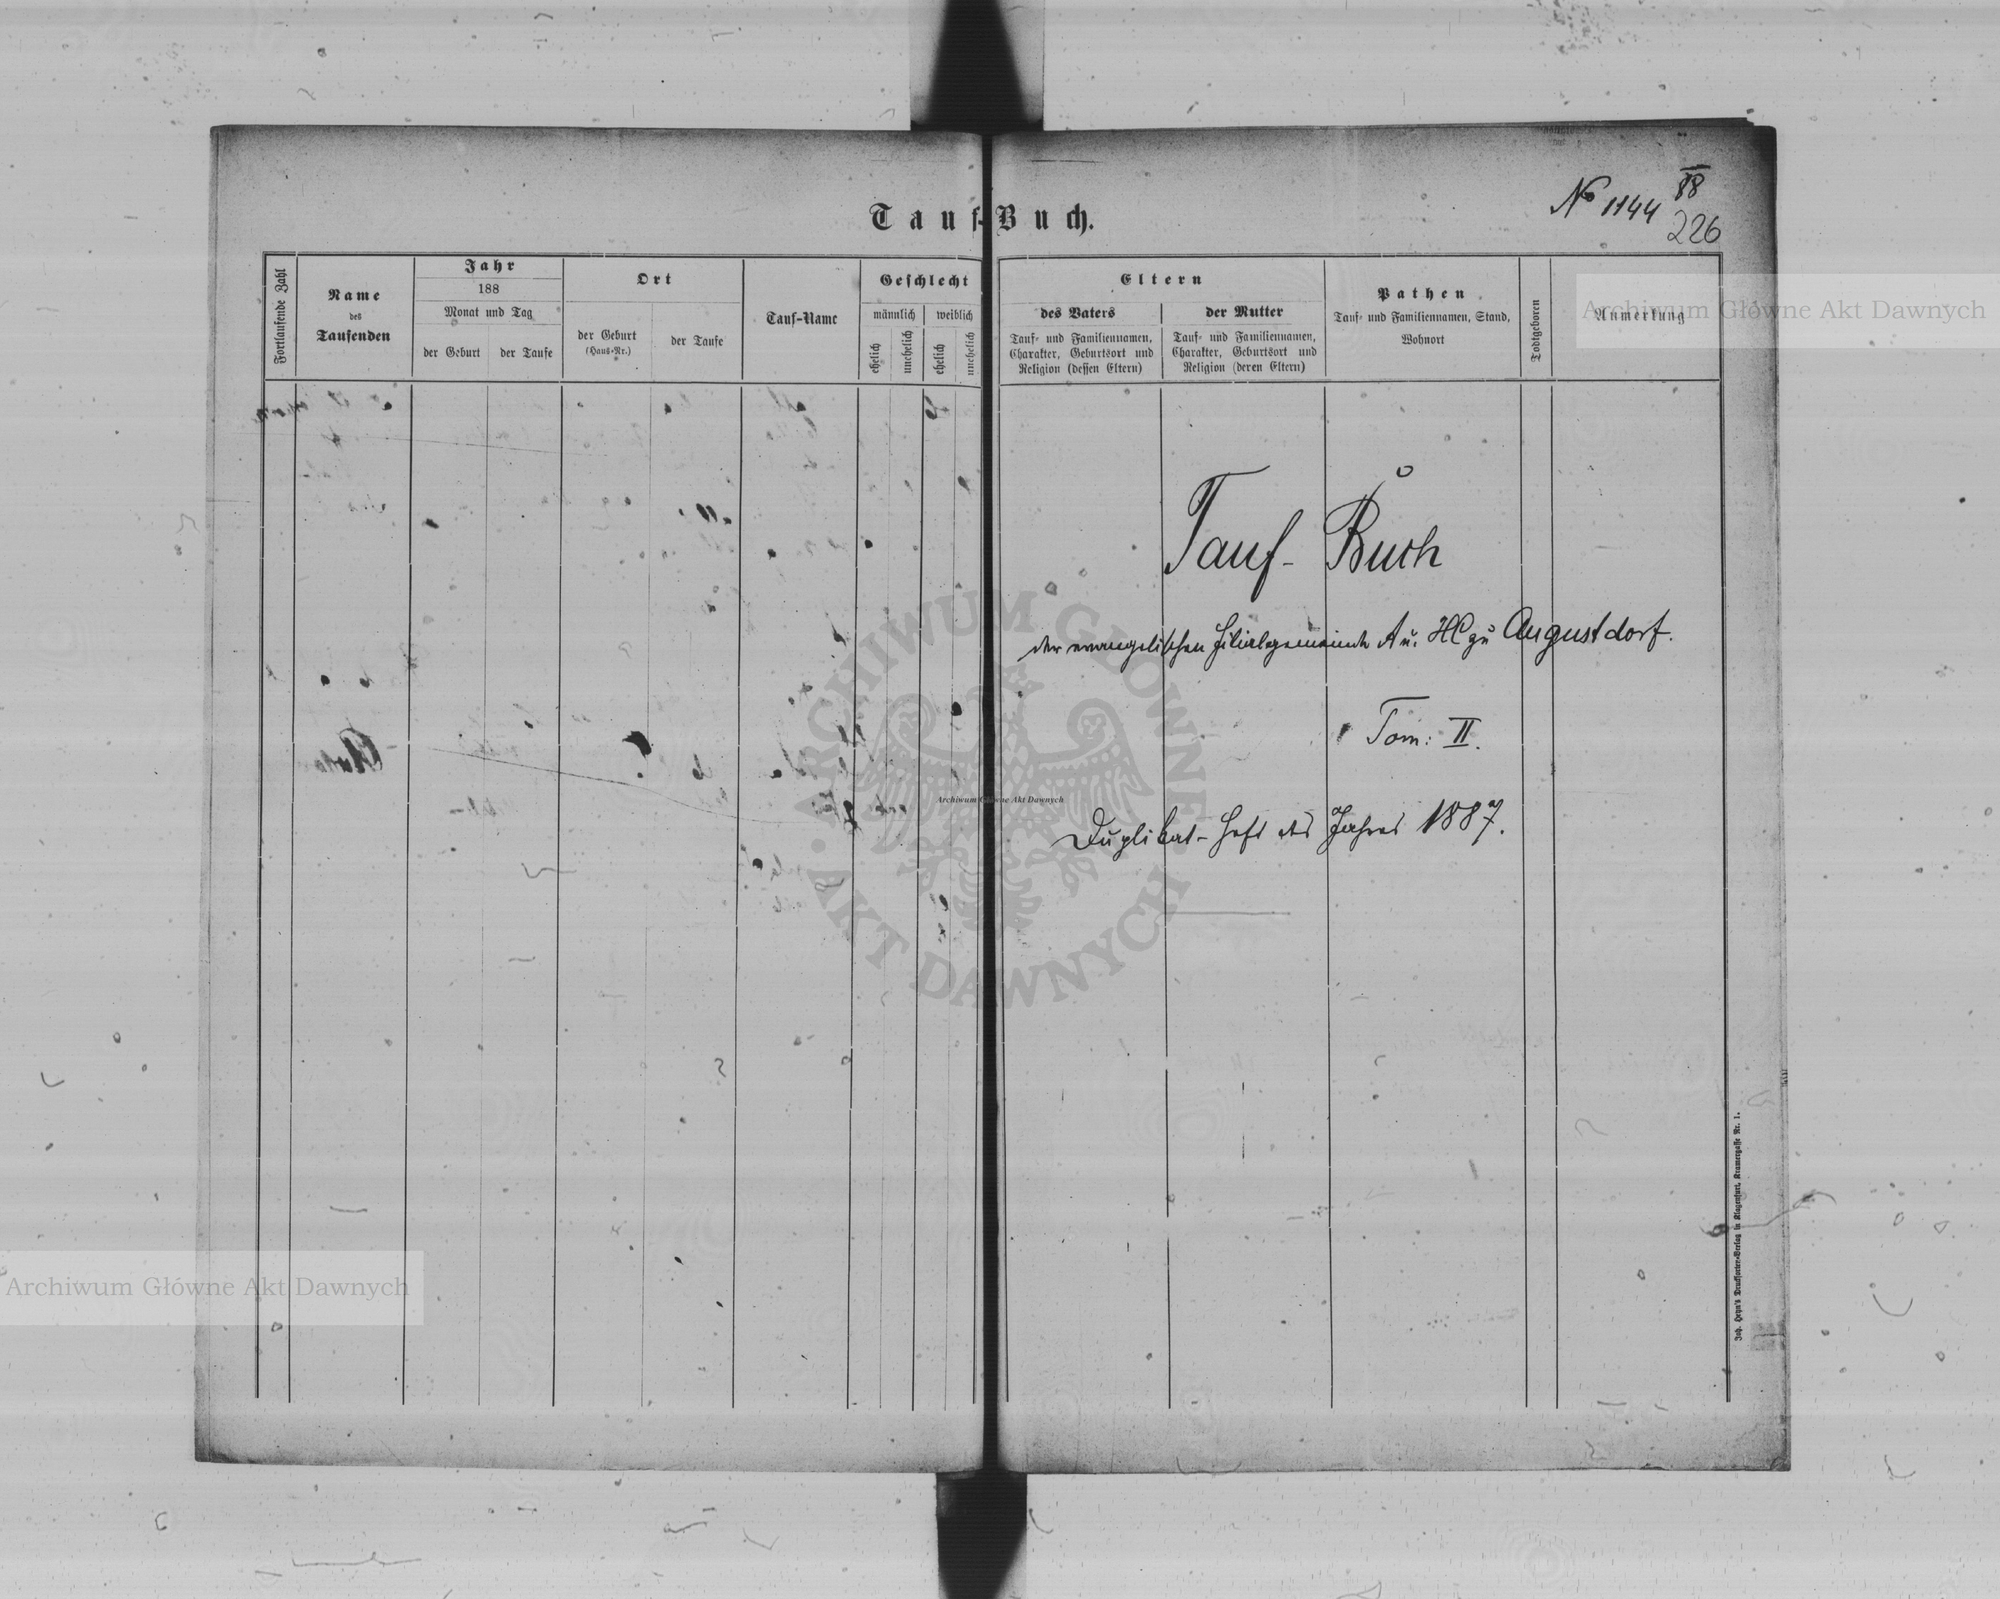 Tauf-Buch.
No 1144 88
III
226
Fortlaufende Zahl
Name
des
Taufenden
Jahr
188
Monat und Tag
der Geburt
der Taufe
Ort
der Geburt
(Haus-Nr.)
der Taufe
Tauf-Name
Geschlecht
männlich
weiblich
ehelich
unehelich
ehelich
unehelich
Eltern
des Vaters
Tauf- und Familiennamen,
Charakter, Geburtsort und
Religion (dessen Eltern)
der Mutter
Tauf- und Familiennamen,
Charakter, Geburtsort und
Religion (deren Eltern)
Pathen
Tauf- und Familiennamen, Stand,
Wohnort
Todtgeboren
Anmerkung
Tauf-Buch
der evangelischen Filialgemeinde A u. HC zu Augustdorf.
Tom: II.
Duplikat-Heft des Jahres 1887.
Joh. Heyn's Drucksorten-Verlag in Klagenfurt, Kramergasse Nr. 1.
Archiwum Główne Akt Dawnych
Archiwum Główne Akt Dawnych
Archiwum Główne Akt Dawnych
ARCHIWUM GŁÓWNE
AKT DAWNYCH